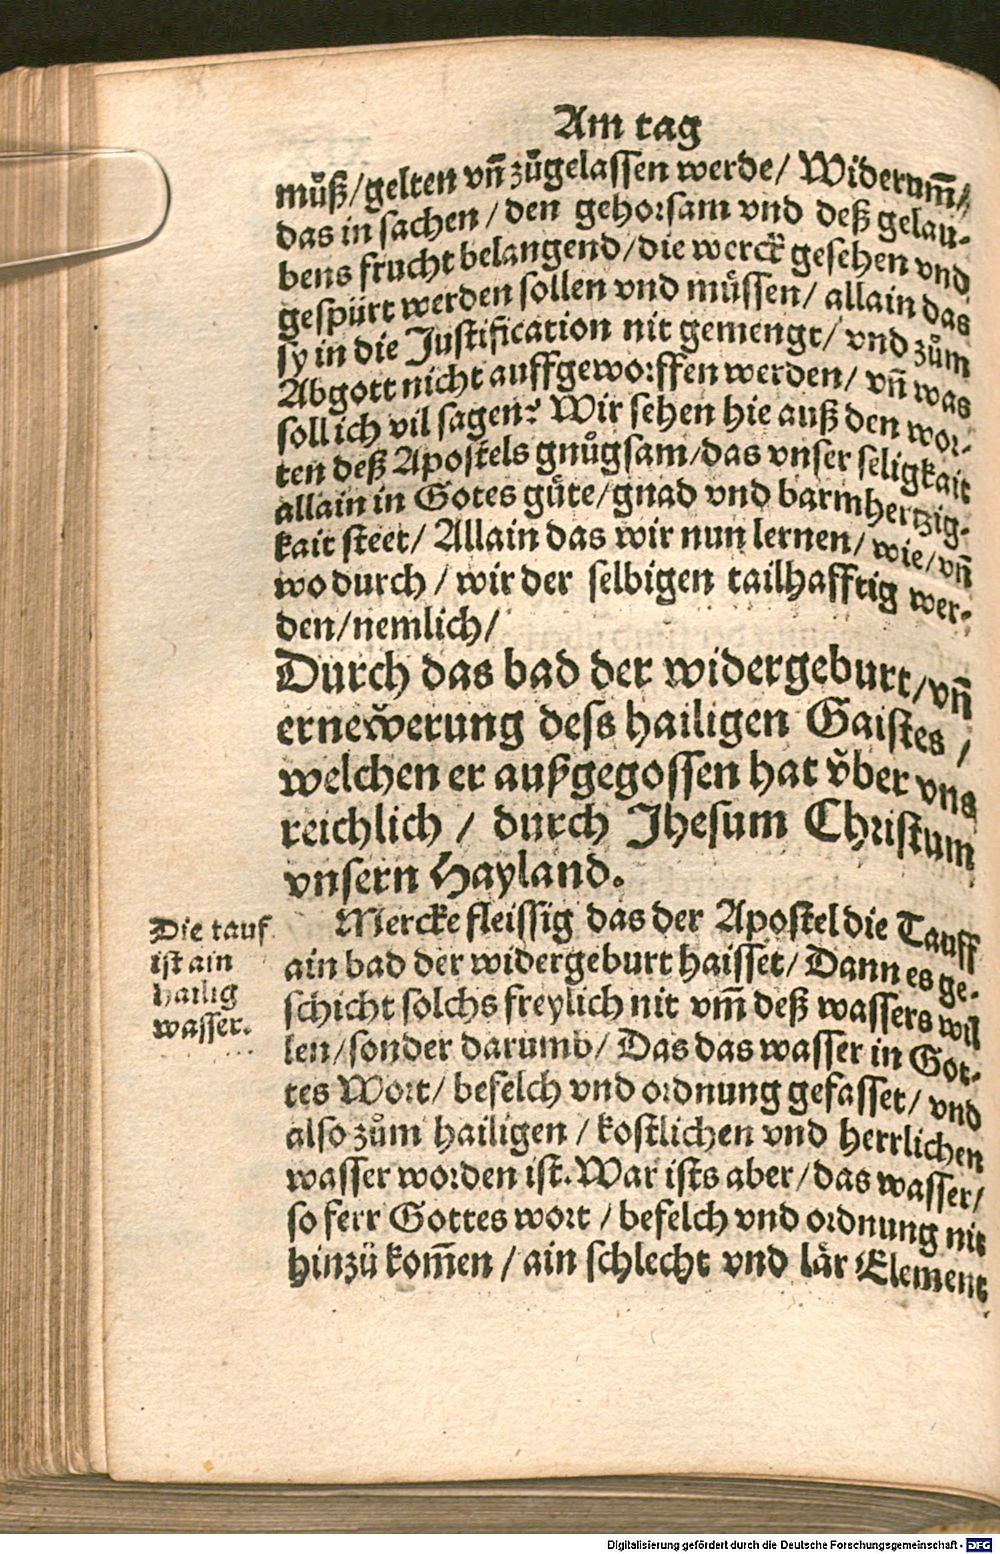 Am tag
muͦß/gelten vñ zuͦgelassen werde/ Widerum̃/
das in sachen/den gehorsam vnd deß gelau-
bens frucht belangend/die werck gesehen vnd
gespürt werden sollen vnd muͤssen/ allain das
sy in die Justification nit gemengt/ vnd zuͦm
Abgott nicht auffgeworffen werden/ vñ was
soll ich vil sagen? Wir sehen hie auß den wor-
ten deß Apostels gnuͦgsam/das vnser seligkait
allain in Gotes guͤte/gnad vnd barmhertzig-
kait steet/ Allain das wir nun lernen/ wie/vñ
wo durch/wir der selbigen tailhafftig wer-
den/nemlich/
Durch das bad der widergeburt/vñ
ernewerung dess hailigen Gaistes/
welchen er außgegossen hat vͤber vns
reichlich/ durch Jhesum Christum
vnsern Hayland.
Die tauf
ist ain
hailig
wasser.
Mercke fleissig das der Apostel die Tauff
ain bad der widergeburt haisset/ Dann es ge-
schicht solchs freylich nit vm̃ deß wassers wil
len/sonder darumb/ Das das wasser in Got-
tes Wort/ befelch vnd ordnung gefasset/ vnd
also zuͦm hailigen/kostlichen vnd herrlichen
wasser worden ist. War ists aber/das wasser/
so ferr Gottes wort/befelch vnd ordnung nit
hinzü kom̃en/ain schlecht vnd laͤr Element
Digitalisierung gefördert durch die Deutsche Forschungsgemeinschaft - DFG